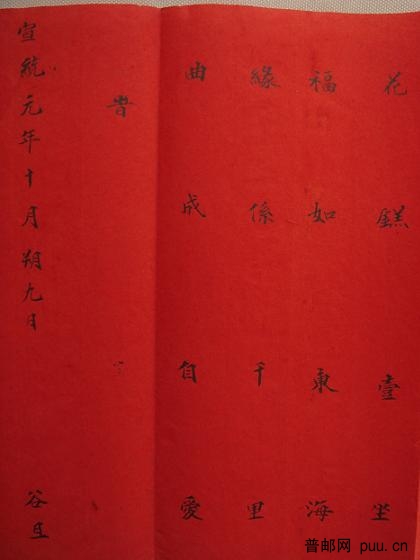 花餻壹坐
福如東海
緣係千里
曲成自愛
旹
宣統元年十月朔九日 谷旦
普邮网 puu.cn